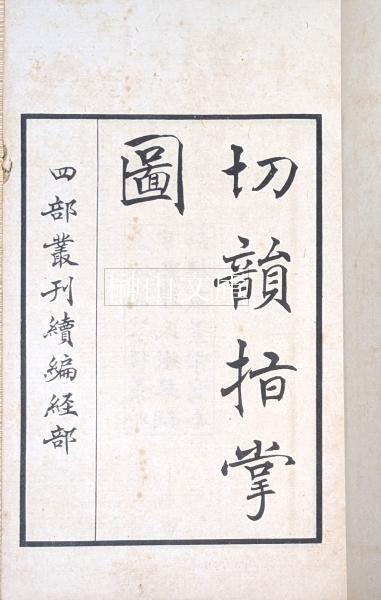 切韻指掌
圖
四部叢刊續編経部
榊山文庫